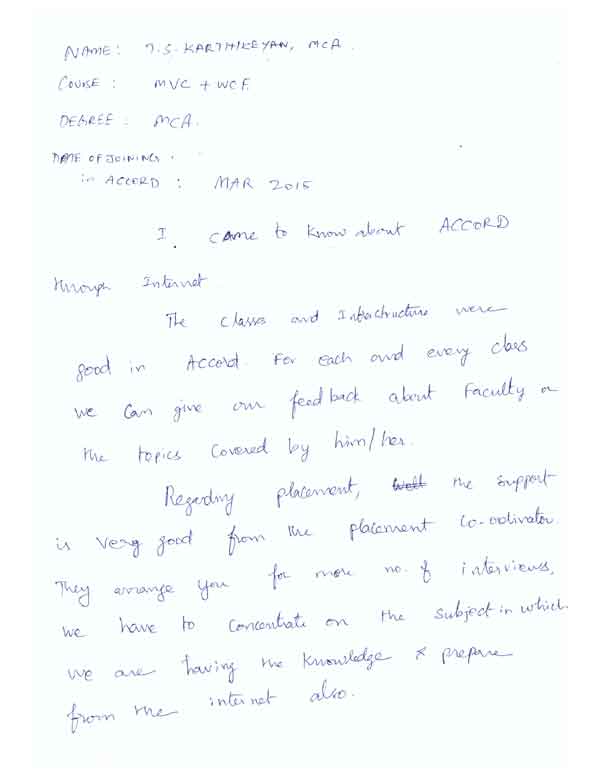 NAME: T.S. KARTHIKEYAN, MCA.
COURSE: MVC + WCF
DEGREE: MCA.
DATE OF JOINING.
in ACCORD: MAR 2015
I. came to know about ACCORD
through Internet.
The classes and Infrachructure were
good in Accord. For each and every class
we can give our feed back about Faculty or
the topics covered by him/her.
Regarding placement, the support
is very good from the placement Co-ordinator.
They arrange you for more no. of interviews,
we have to concentrate on the subject in which
we are having the knowledge & prepare
from the internet also.